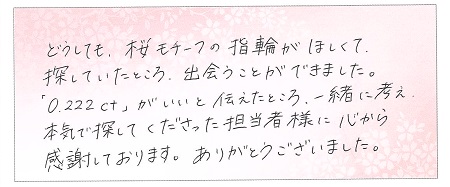 どうしても、桜モチーフの指輪がほしくて、
探していたところ、出会うことができました。
「0.222ct」がいいと伝えたところ、一緒に考え、
本気で探してくださった担当者様に心から
感謝しております。ありがとうございました。